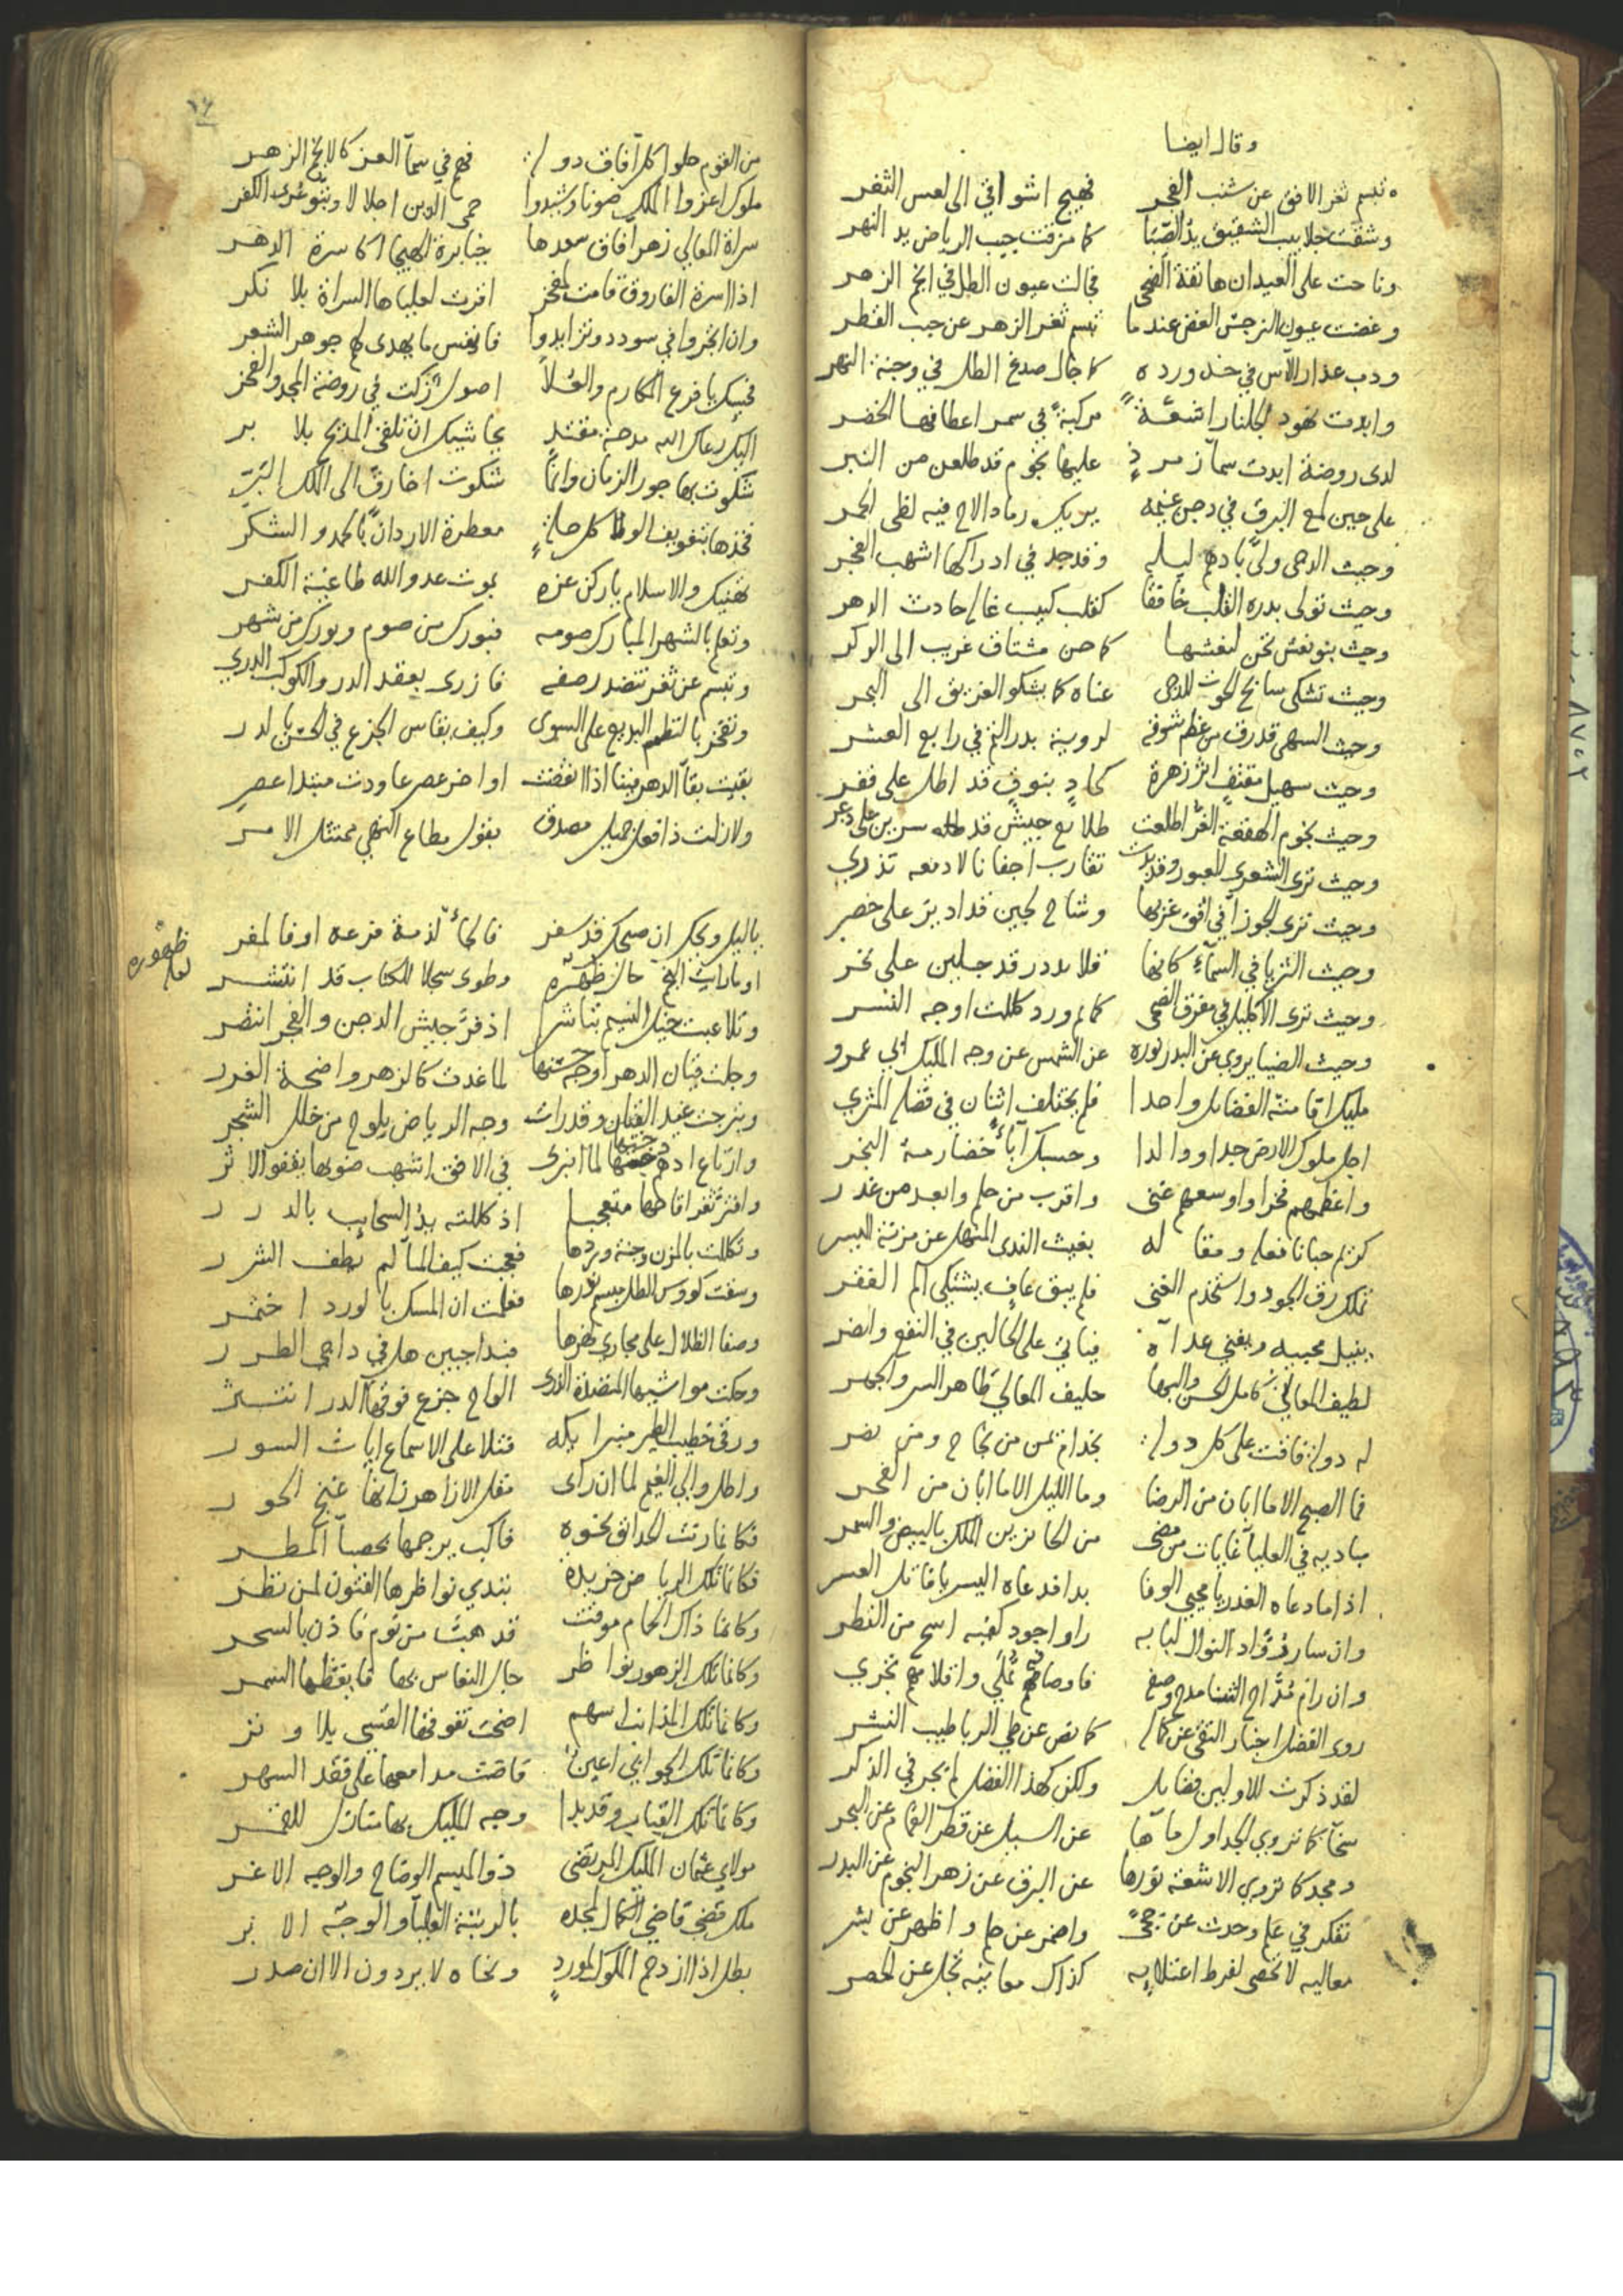 وقال ايضا
تبسم ثغر الافق عن شنب الفجر فهيج اشواقي الى لعس الثغر
وشقت جلابيب الشقيق يد الصبا كما مزقت جيب الرياض يد النهر
وناحت على العيدان هاتفة الضحى فجالت عيون الطل في انجم الزهر
وغضت عيون النرجس الغض عندما تبسم ثغر الزهر عن حبب القطر
ودب عذار الآس في خد ورده كما جال صدغ الطل في وجنة النهر
وابدت نهود الجلنار اشعة مركبة في سمر اعطافها الخضر
لدى روضة ابدت سمآ زمرذٍ عليها نجوم قد طلعن من التبر
على حين لمع البرق في دجن غيمه يريك رمادا لاح فيه لظى الجمر
وحيث الدجى ولى بادهم ليله وقد جد في ادراكها اشهب الفجر
وحيث تولى بدره القلب خافقا كقلب كئيب غاله حادث الدهر
وحيث بنو نعش تحن لنعشها كما حن مشتاق غريب الى الوكر
وحيث تشكى سابح الحوت للدجى عناه كما يشكو الغريق الى البحر
وحيث السهى قد رق من عظم شوقه لروية بدر التم في رابع العشر
وحيث سهيل مقتفٍ اثر زهرة كحادٍ بنوقٍ قد اطل على قفر
وحيث نجوم الهقعة الغر اطلعت طلائع جيش قد سرين على ذعر
وحيث ترى الشعرى العبور وقد بدت تقارب اجفانا لادمعه تذري
وحيث ترى الجوزآ في افق غربها وشاح لجين قد ادير على خصر
وحيث الثريا في السمآء كانها قلائد در قد جلين على نحر
وحيث ترى الاكليل في مفرق الضحى كمائم ورد كللت اوجه النسر
وحيث الضيا يروي عن البدر نوره عن الشمس عن وجه المليك ابي عمرو
مليك اقامته الفضائل واحدا فلم يختلف اثنان في فضله المثري
اجل ملوك الارض جدا ووالدا وحسبك آباء خضارمة النجر
واعظمهم فخرا واوسعهم غنى واقرب من حلم وابعد من غدر
كريم حبانا فعله ومقاله بغيث الندى المنهل عن مزنة اليسر
تملك رق الجود واستخدم الغنى فلم يبق عافٍ يشتكي الم الفقر
ينيل محبيه ويفني عداته فياتي على الحالين في النفع والضر
لطيف المعاني كامل الحسن والبها حليف المعالي طاهر السر والجهر
له دولة فاقت على كل دولة بخدام يمن من نجاح ومن نصر
فما الصبح الا ما ابان من الرضا وما الليل الا ما ابان من الفجر
اذا ما دعاه الغدر يا محيي الوفا بدا فدعاه اليسر يا قاتل العسر
وان سار رواد النوال لبابه راوا جود كفيه اسح من القطر
وان رام مداح الثنا مدح وصفه فاوصافه تملي واقلامهم تجري
روى الفضل اخبار التقى عن كماله كما نص عن طي الربا طيب النشر
لقد ذكرت للاولين فضايل ولكن كهذا الفضل لم يجر في الذكر
سخآ كما تروي الجداول مآها عن السيل عن قطر الغمام عن البحر
ومجد كما تروي الاشعة نورها عن البرق عن زهر النجوم عن البدر
تفكر في علم وحدث عن حجى واضمر عن حلم واظهر عن بشر
معاليه لا تحصى لفرط اعتلائه كذاك معانيه تجل عن الحصر
١٦
من القوم حلوا كل آفاق دولة فهم في سمآ العز كالانجم الزهر
ملوك اعزوا الملك صونا وشيدوا حمى الدين اجلالا وبتوا عرى الكفر
سراة المعالي زهر افاق سعدها جبابرة الهيجا اكاسرة الدهر
اذا اسرة الفاروق قامت لمفخر اقرت لعلياها السراة بلا نكر
وان اتجروا في سودد وتزايدوا فانفس ما يهدى لهم جوهر الشعر
فحسبك يا فرع المكارم والعلا اصول زكت في روضة المجد والفخر
اليك رعاك الله مدحة مفتد يحاشيك ان تلقى المديح بلا بر
شكوت بها جور الزمان وانما شكوت اخا رق الى الملك البر
فخذها بتفويف الولا كل حلة معطرة الاردان بالحمد والشكر
تهنيك والاسلام يا ركن عزه بموت عدو الله طاغية الكفر
وتعلم بالشهر المبارك صومه فبورك من صوم وبورك من شهر
وتبسم عن ثغر تنضد رصفه فازرى بعقد الدر والكوكب الدري
وتفخر بالنظم البديع على السوى وكيف يقاس الجزع في الحسن بالدر
بقيت بقآ الدهر فينا اذا انقضت اواخر عصر عاودت مبتدا عصر
ولا زلت ذا فعل جميل مصدق بقول مطاع النهي ممتثل الامر
يا ليل ويحك ان صبحك قد سفر فالجأ لذمة فرعه او فالمفر
وطوى سجلا للكتاب قد انتشر
ظهوره
لعله
وتلاعبت خيل النسيم تباشرا اذ فر جيش الدجن والفجر انتصر
وجلت قيان الدهر اوجه حسنها لما غدت كالزهر واضحة الغرر
وتبرجت غيد القيان وقد رات وجه الرياض يلوح من خلل الشجر
وارتاع ادهم جنحها لما انبرى في الافق اشهب ضوئها يقفو الاثر
وافتر ثغر اقاحها متعجبا اذ كللته يد السحايب بالدرر
وتكللت بالمزن وجنة وردها فعجبت كيف المآ لم يطف الشرر
وسقت كووس الطل مبسم نورها فعلمت ان المسك بالورد اختمر
وضفا الظلال على مجاري نهرها فبدا جبين هل في داجي الطرر
وحكت مواشيها المنضدة الذرى الواح جزع فوقها الدر انتثر
ورقى خطيب الطير منبر ايكه فتلا على الاسماع ايات السور
واطل والي الغيم لما ان راى مقل الازاهر زانها غنج الحور
فكانما رتت الحدائق نحوه فاكب يرجمها بحصبآ المطر
فكانما تلك الرياض خريدة تبدي نواظرها الفتون لمن نظر
وكانما ذاك الحمام موقت قد هب من نوم فاذن بالسحر
وكانما تلك الزهور نواظر جال النعاس بها فايقظها السمر
وكانما تلك المذانب اسهم اضحت تفوقها القسي بلا وتر
وكانما تلك الجوابي اعين فاضت مدامعها على فقد السهر
وكانما تلك القباب وقد بدا وجه المليك بها منازل للقمر
مولاي عثمان المليك المرتضى ذو الميسم الوضاح والوجه الاغر
ملك قضى قاضي الكمال لمجده بالرتبة العليآ والوجه الابر
بطل اذا ازدحم الملوك لموردٍ ونحاه لا يردون الا ان صدر